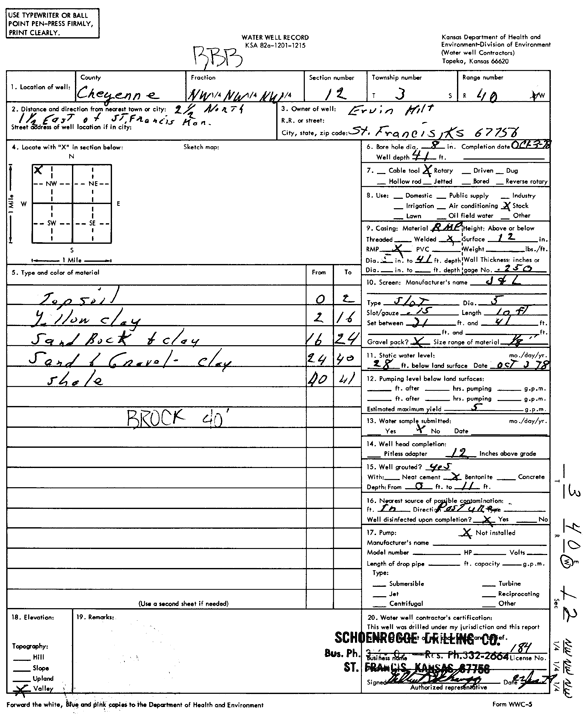 USE TYPEWRITER OR BALL
POINT PEN-PRESS FIRMLY,
PRINT CLEARLY.
WATER WELL RECORD
KSA 82a-1201-1215
Kansas Department of Health and
Environment-Division of Environment
(Water well Contractors)
Topeka, Kansas 66620
BBB
1. Location of well:
County
Cheyenne
Fraction
NW 1/4 NW 1/4 NW 1/4
Section number
12
Township number
T 3 S
Range number
R 40 W
2. Distance and direction from nearest town or city: 2 1/2 North
1 1/2 East of St. Francis Kan.
Street address of well location if in city:
3. Owner of well: Ervin Hilt
R.R. or street:
City, state, zip code: St. Francis, Ks 67756
4. Locate with "X" in section below:
Sketch map:
N
X
NW NE
W E
SW SE
S
1 Mile
1 Mile
6. Bore hole dia. 8 in. Completion date Oct-3-78
Well depth 41 ft.
7. Cable tool X Rotary Driven Dug
Hollow rod Jetted Bored Reverse rotary
8. Use: Domestic Public supply Industry
Irrigation Air conditioning X Stock
Lawn Oil field water Other
9. Casing: Material RMP Height: Above or below
Threaded Welded X Surface 12 in.
RMP X PVC Weight lbs./ft.
Dia. 5 in. to 41 ft. depth Wall Thickness: inches or
Dia. in. to ft. depth gage No. .250
5. Type and color of material
From To
Topsoil 0 2
Yellow clay 2 16
Sand Rock & clay 16 24
Sand & Gravel - clay 24 40
Shale 40 41
BROCK 40'
(Use a second sheet if needed)
10. Screen: Manufacturer's name J & L
Type SLOT Dia. 5
Slot/gauze .15 Length 10 ft
Set between 31 ft. and 41 ft.
ft. and ft.
Gravel pack? X Size range of material 1/8"
11. Static water level: mo./day/yr.
28 ft. below land surface Date Oct 3 78
12. Pumping level below land surfaces:
ft. after hrs. pumping g.p.m.
ft. after hrs. pumping g.p.m.
Estimated maximum yield 5 g.p.m.
13. Water sample submitted: mo./day/yr.
Yes X No Date
14. Well head completion:
Pitless adapter 12 Inches above grade
15. Well grouted? yes
With: Neat cement X Bentonite Concrete
Depth: From 0 ft. to 11 ft.
16. Nearest source of possible contamination:
ft. In Direction Pasture Type
Well disinfected upon completion? X Yes No
17. Pump: X Not installed
Manufacturer's name
Model number HP Volts
Length of drop pipe ft. capacity g.p.m.
Type:
Submersible Turbine
Jet Reciprocating
Centrifugal Other
18. Elevation:
Topography:
Hill
Slope
Upland
X Valley
19. Remarks:
20. Water well contractor's certification:
This well was drilled under my jurisdiction and this report
SCHOENROGGE DRILLING CO.
Bus. Ph. Res. Ph. 332-2664
184
Business name License No.
ST. FRANCIS, KANSAS 67756
Signed Date
Authorized representative
Forward the white, Blue and pink copies to the Department of Health and Environment
Form WWC-5
T 3 R 40 E W Sec 12 1/4 1/4 1/4 NW NW NW